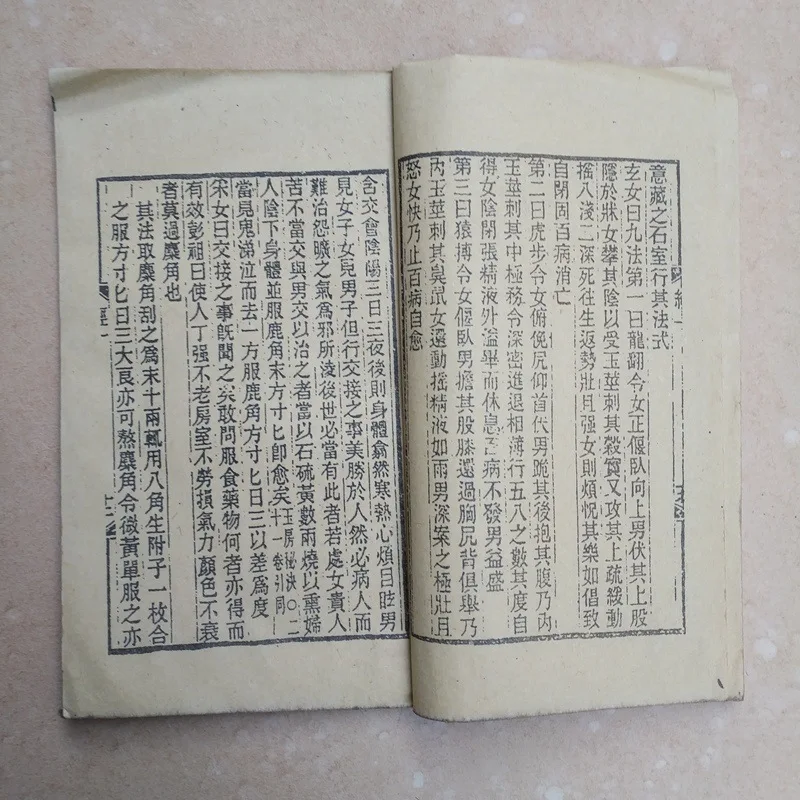 意藏之石室行其法式
玄女曰九法第一曰龍翻令女正偃臥向上男伏其上股
隱於牀女攀其陰以受玉莖刺其穀實又攻其上疏緩動
搖八淺二深死往生返勢壯且強女則煩悅其樂如倡致
自閉固百病消亡
第二曰虎步令女俯俛尻仰首伏男跪其後抱其腹乃內
玉莖刺其中極務令深密進退相薄行五八之數其度自
得女陰閉張精液外溢畢而休息百病不發男益盛
第三曰猿搏令女偃臥男擔其股膝還過胸尻背俱舉乃
內玉莖刺其臭鼠女還動搖精液如雨男深案之極壯且
怒女快乃止百病自愈
含交會陰陽三日三夜後則身體翕然寒熱心煩目眩男
見女子女見男子但行交接之事美勝於人然必病人而
難治怨曠之氣爲邪所淩後世必當有此者若處女貴人
苦不當交與男交以治之者當以石硫黃數兩燒以熏婦
人陰下身體並服鹿角方寸匕即愈矣玉房秘決〇二十一卷引同
當見鬼涕泣而去一方服鹿角方寸匕日三以差爲度
采女曰交接之事旣聞之矣敢問服食藥物何者亦得而
有效彭祖曰使人丁强不老房室不勞損氣力顏色不衰
者莫過麋角也
其法取麋角刮之爲末十兩輒用八角生附子一枚合
之服方寸匕日三大良亦可熬麋角令微黃單服之亦